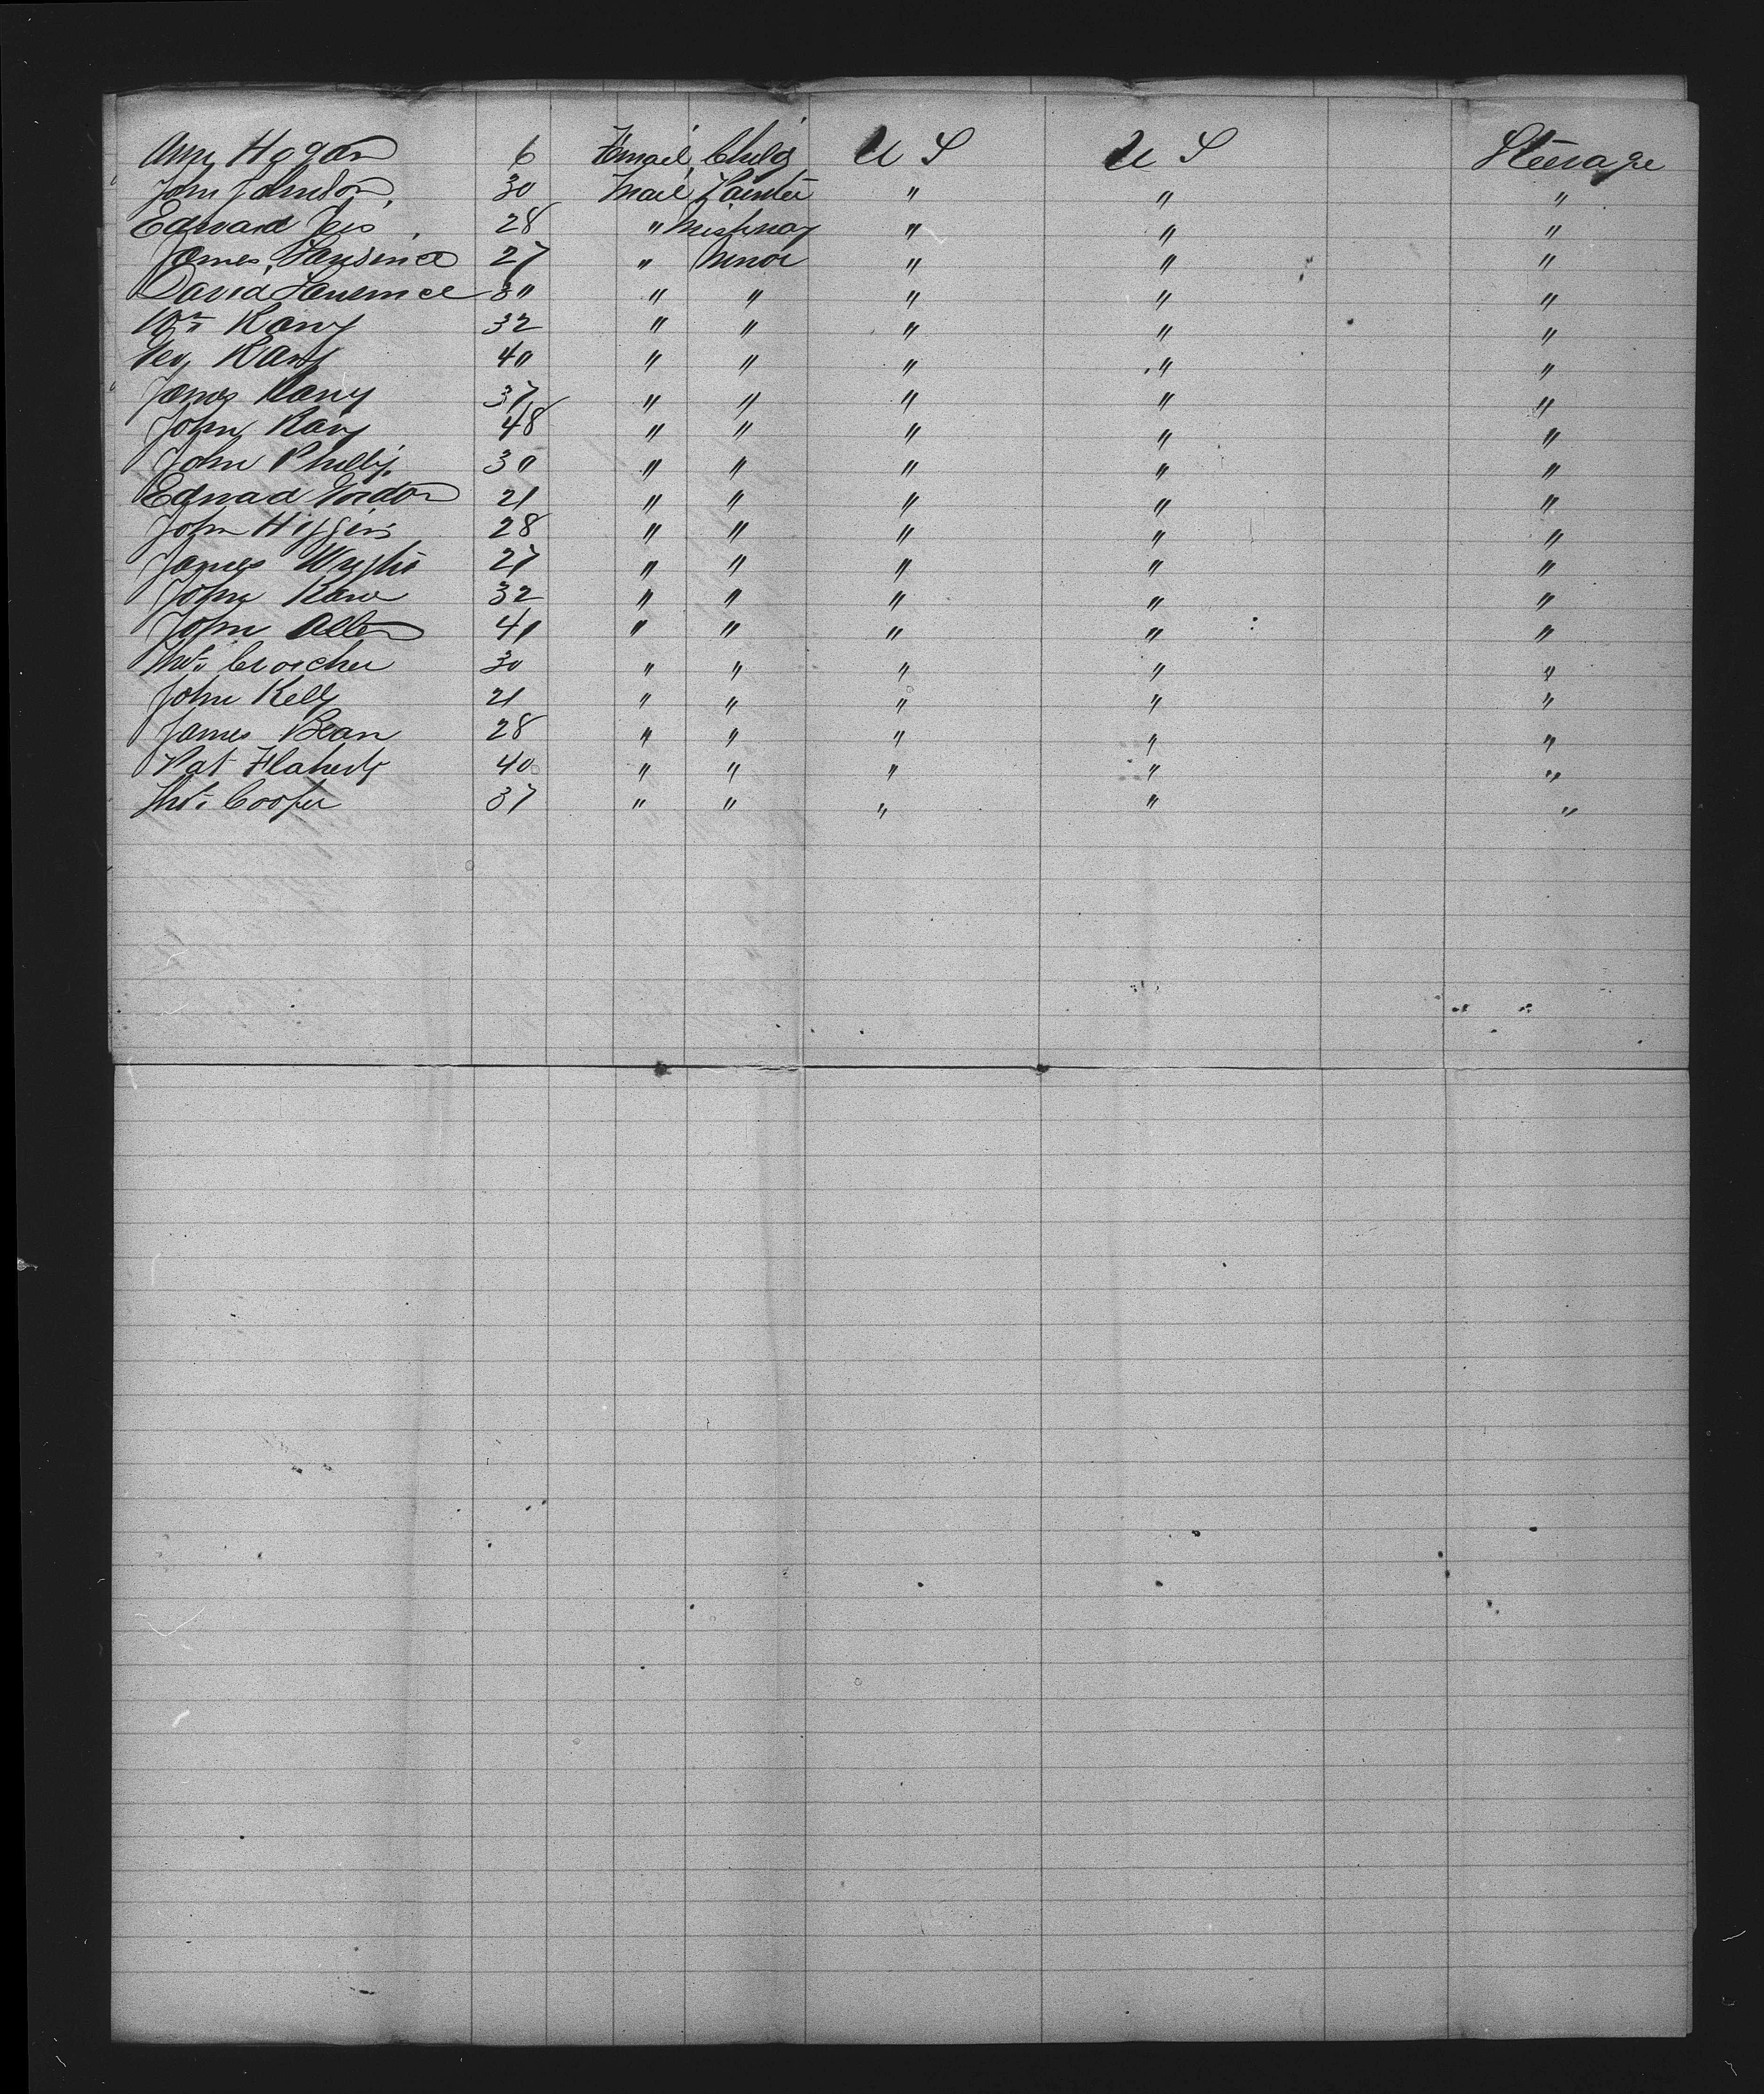 Ann Hogan 6 Femail Child U S U S Steerage
John Johnson 30 Mail Painter " " "
Edward 28 " " " "
James Lawrence 27 " Minor " " "
David Lawrence 30 " " " " "
Wm Kany 32 " " " " "
Geo Kany 40 " " " " "
James Kany 37 " " " " "
John Kany 48 " " " " "
John Phillip 30 " " " " "
Edward Gordon 21 " " " " "
John Higgins 28 " " " " "
James 27 " " " " "
John Kane 32 " " " " "
John Allen 41 " " " " "
Thos. Croicher 30 " " " " "
John Kelly 21 " " " " "
James Bean 28 " " " " "
Pat Flaherty 40 " " " " "
Thos. Cooper 37 " " " " "